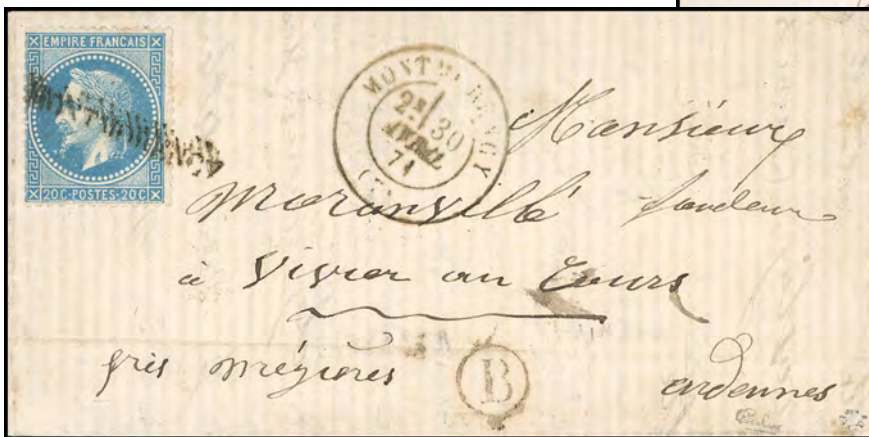 EMPIRE FRANCAIS
20C·POSTES·20C
MONTM RENCY
2E
30
AVRIL
71
Monsieur
Moranvillé fondeur
à Vivier au Cours
près mézières
B
ardennes